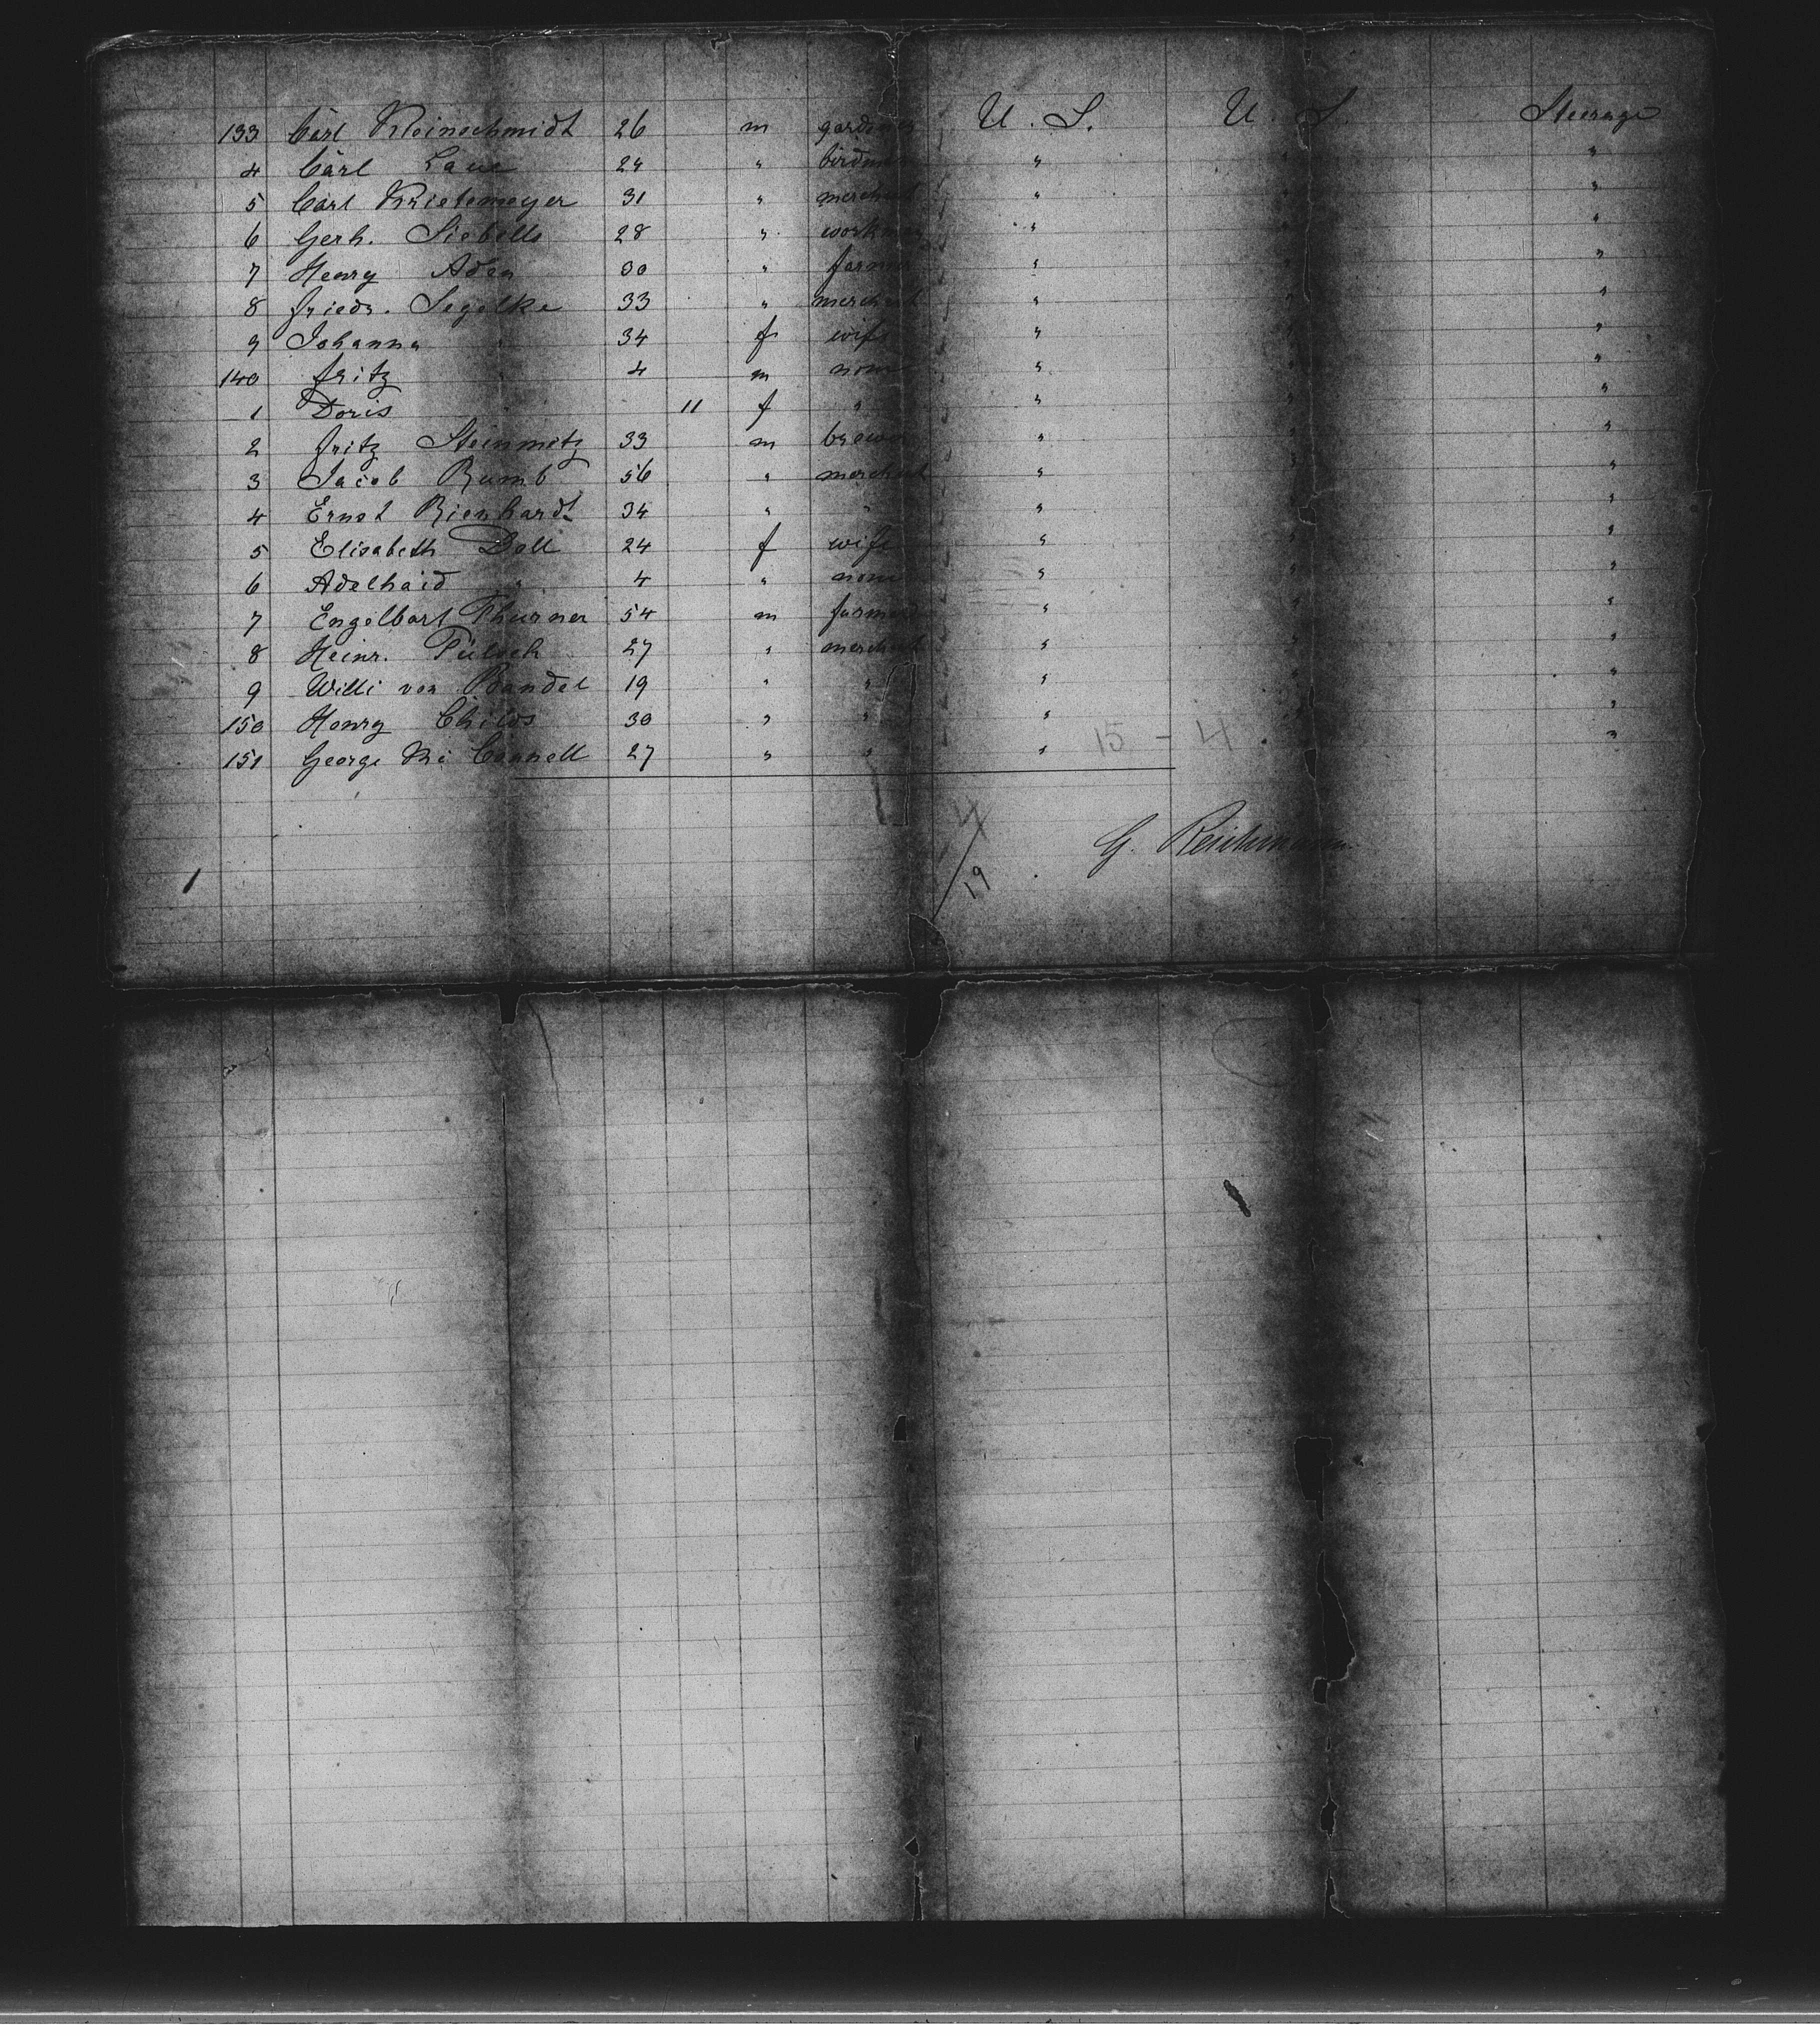 133 Carl Kleinschmidt 26 m gardener U. S. U. S. Steerage
4 Carl Laue 24 " birdman " " "
5 Carl Krietemeyer 31 " merchant " " "
6 Gerh. Siebells 28 " workman " " "
7 Henry Aden 30 " farmer " " "
8 Friedr. Segelke 33 " merchant " " "
9 Johanna " 34 f wife " " "
140 Fritz " 4 m none " " "
1 Doris " 11 f " " " "
2 Fritz Steinmetz 33 m brewer " " "
3 Jacob Rumb 56 " merchant " " "
4 Ernst Rienhardt 34 " " " " "
5 Elisabeth Doll 24 f wife " " "
6 Adelhaid " 4 " none " " "
7 Engelbart Thurner 54 m farmer " " "
8 Heinr. Fülsch 27 " merchant " " "
9 Willi von Bandel 19 " " " " "
150 Henry Childs 30 " " " " "
151 George Mc Connell 27 " " " "
15 - 4
4/19
G. Reichmann